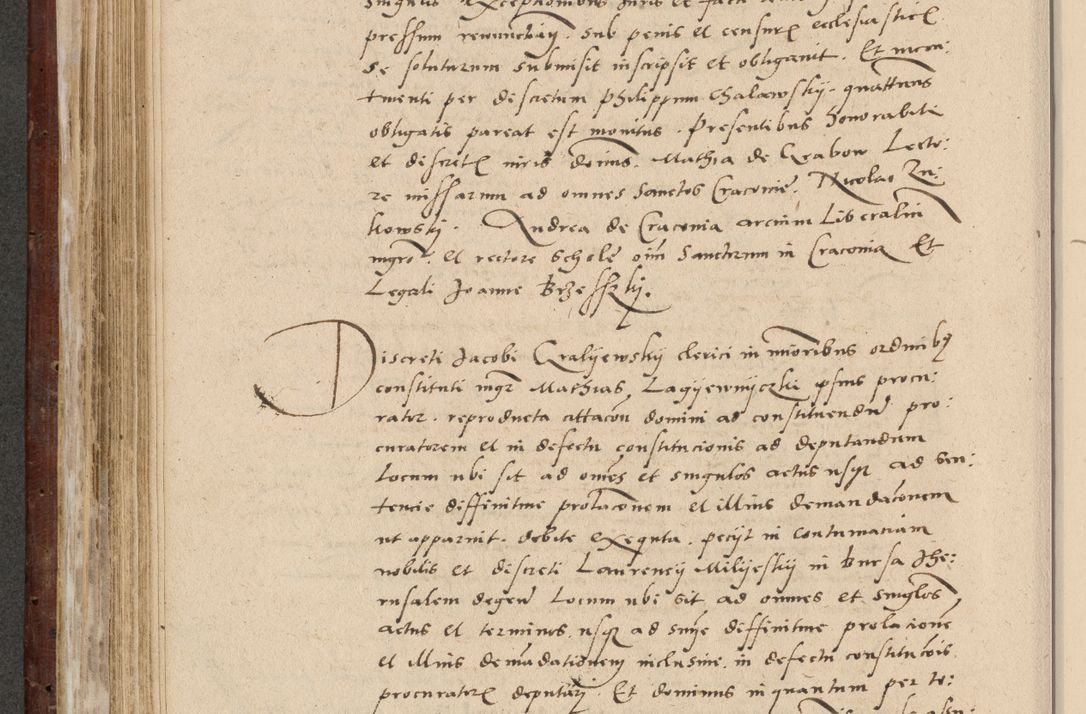 singulis exceptionibus iuris et facti
pressum renunctiaty. sub penis et censuris ecclesiasticis
se soluturum submisit inscripsit et obligauit. Et incon:
tinenti per discretum Philippum Chalawskij. quattenus
obligatis pareat est monitus. Presentibus honorabili
et discretis viris dominis. Mathia de Grabow Lecto:
re missarum ad omnes Sanctos Cracouie. Nicolao Zu:
kowskij. Andrea de Cracouia arcium Liberalium
mgro. et rectore Schole oim Sanctorum in Cracouia Et
Legali Joanne Brzesskij.
Discreti Jacobi Gralijewskij clerici in minoribus ordinibus
constituti mgr Mathias Lagijewnijczki ipsius procu:
rator. reproducta cittacon domini ad constituendum pro:
curatorem et in defectu constitucionis ad deputandum
Locum ubi sit ad omnes et singulos actus usque ad sen:
tencie diffinitiue prolaconem et illius demandaconem
ut apparuit. debite exequuta. pecijt in contumaciam
nobilis et discreti Laurencij Milijeskij in Bursa Jhe:
rusalem degen Locum ubi sit ad omnes et singlos
actus et terminos usque ad snie diffinitiue prolacione
et illius demadationem inclusiue. in defectu constitucois
procuratoris deputarj. Et dominus in quantum per to: